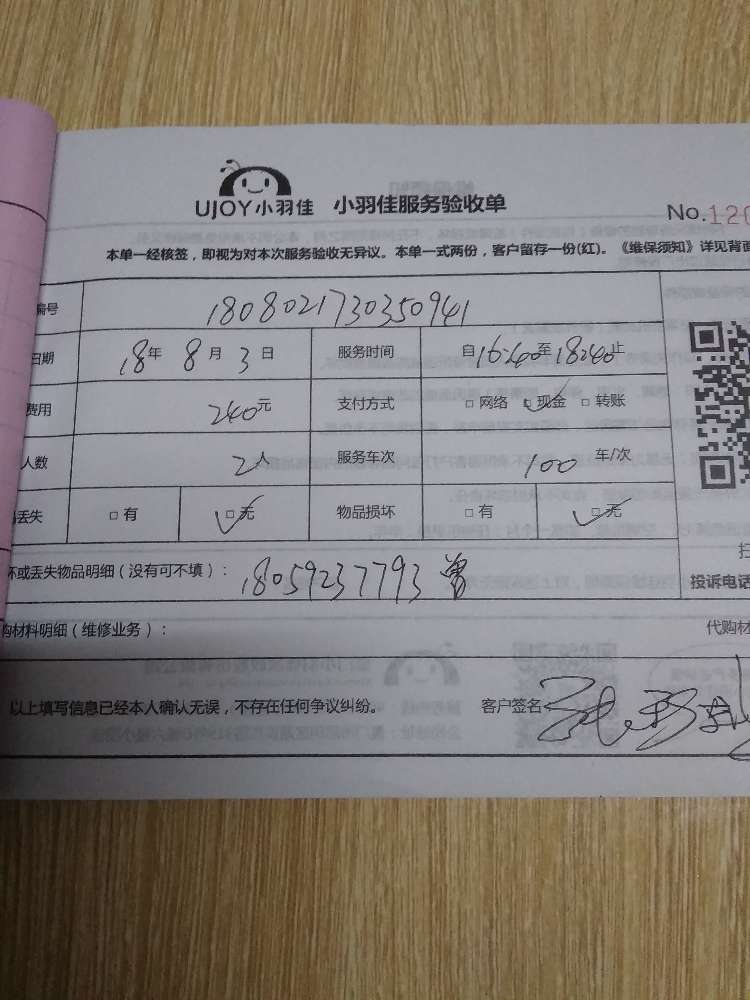 UJOY小羽佳 小羽佳服务验收单 No.120
本单一经核签，即视为对本次服务验收无异议。本单一式两份，客户留存一份(红)。《维保须知》详见背面
编号 1808021730350941
日期 18年 8月 3日 服务时间 自16:40至18:40止
费用 240元 支付方式 □网络 □现金 □转账
人数 2人 服务车次 100 车/次
丢失 □有 □无 物品损坏 □有 □无
坏或丢失物品明细（没有可不填）： 18059237793 曾
投诉电话
购材料明细（维修业务）： 代购材
以上填写信息已经本人确认无误，不存在任何争议纠纷。 客户签名